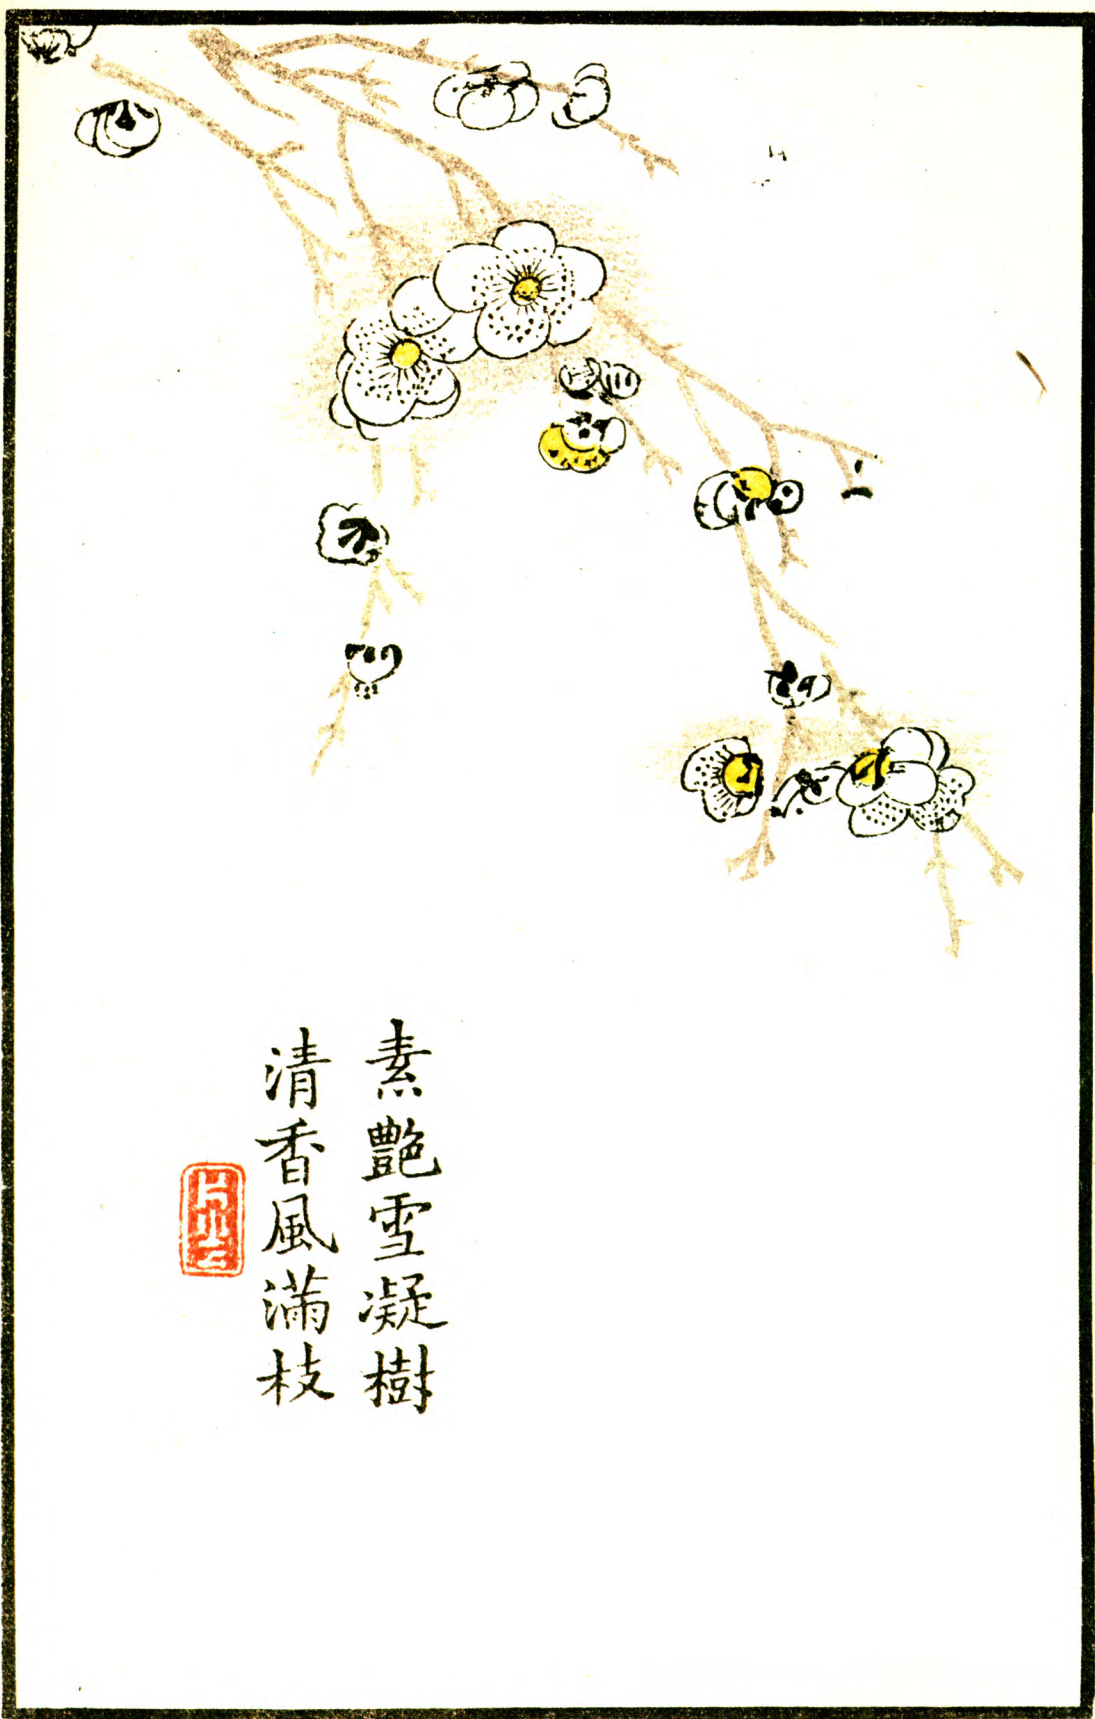 素艷雪凝樹
清香風滿枝